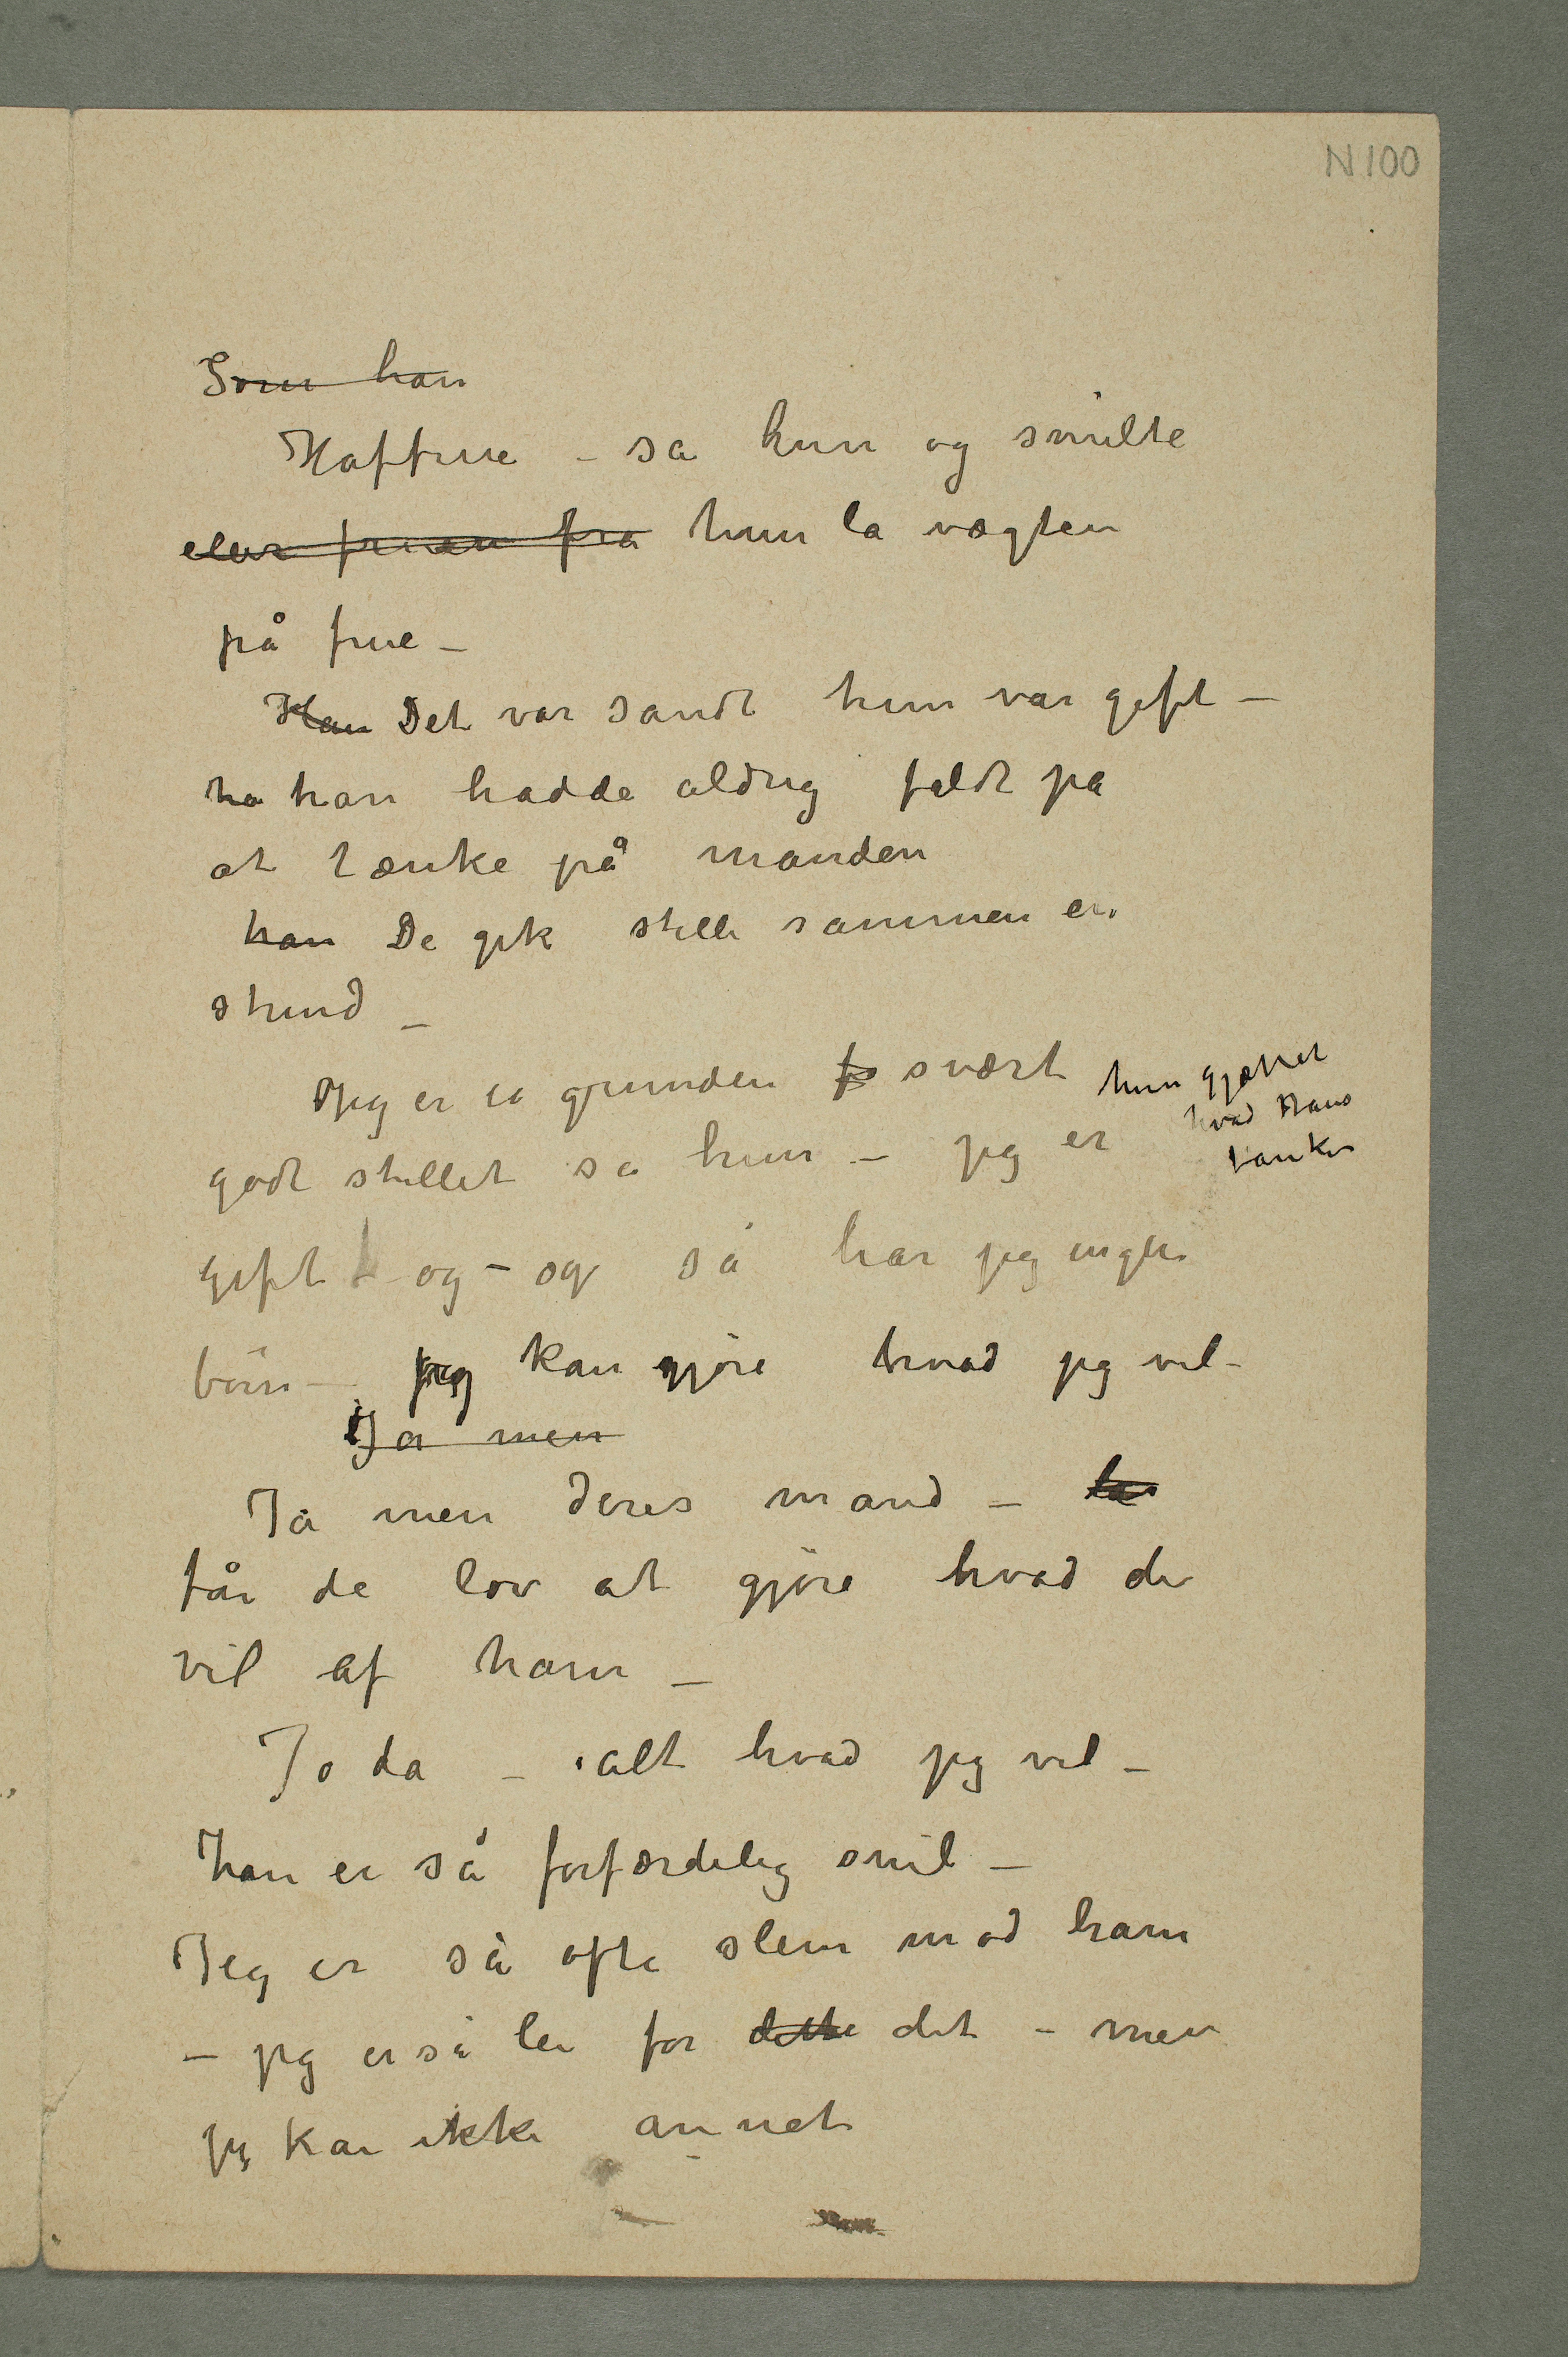 N 100
Som han
Haffrue – sa hun og smilte
eler fruen fra hun la vægten
på frue –
Han Det var sandt hun var gift –
ha han hadde aldrig faldt på
at tænke på manden
han De gik stille sammen en
stund –
Jeg er i grunden svært
hun gjættet
hvad Hans
tanker
godt stillet sa hun – jeg er
gift – og – og så har jeg ingen
börn – jeg kan gjöre hvad jeg vil –
Ja men
Ja men deres mand –
får de lov at gjöre hvad de
vil af ham –
Jo da – alt hvad jeg vil –
han er så forfærdelig snil –
Jeg er så ofte slem mod ham
– jeg er så lei for dette det – men
jeg kan ikke annet